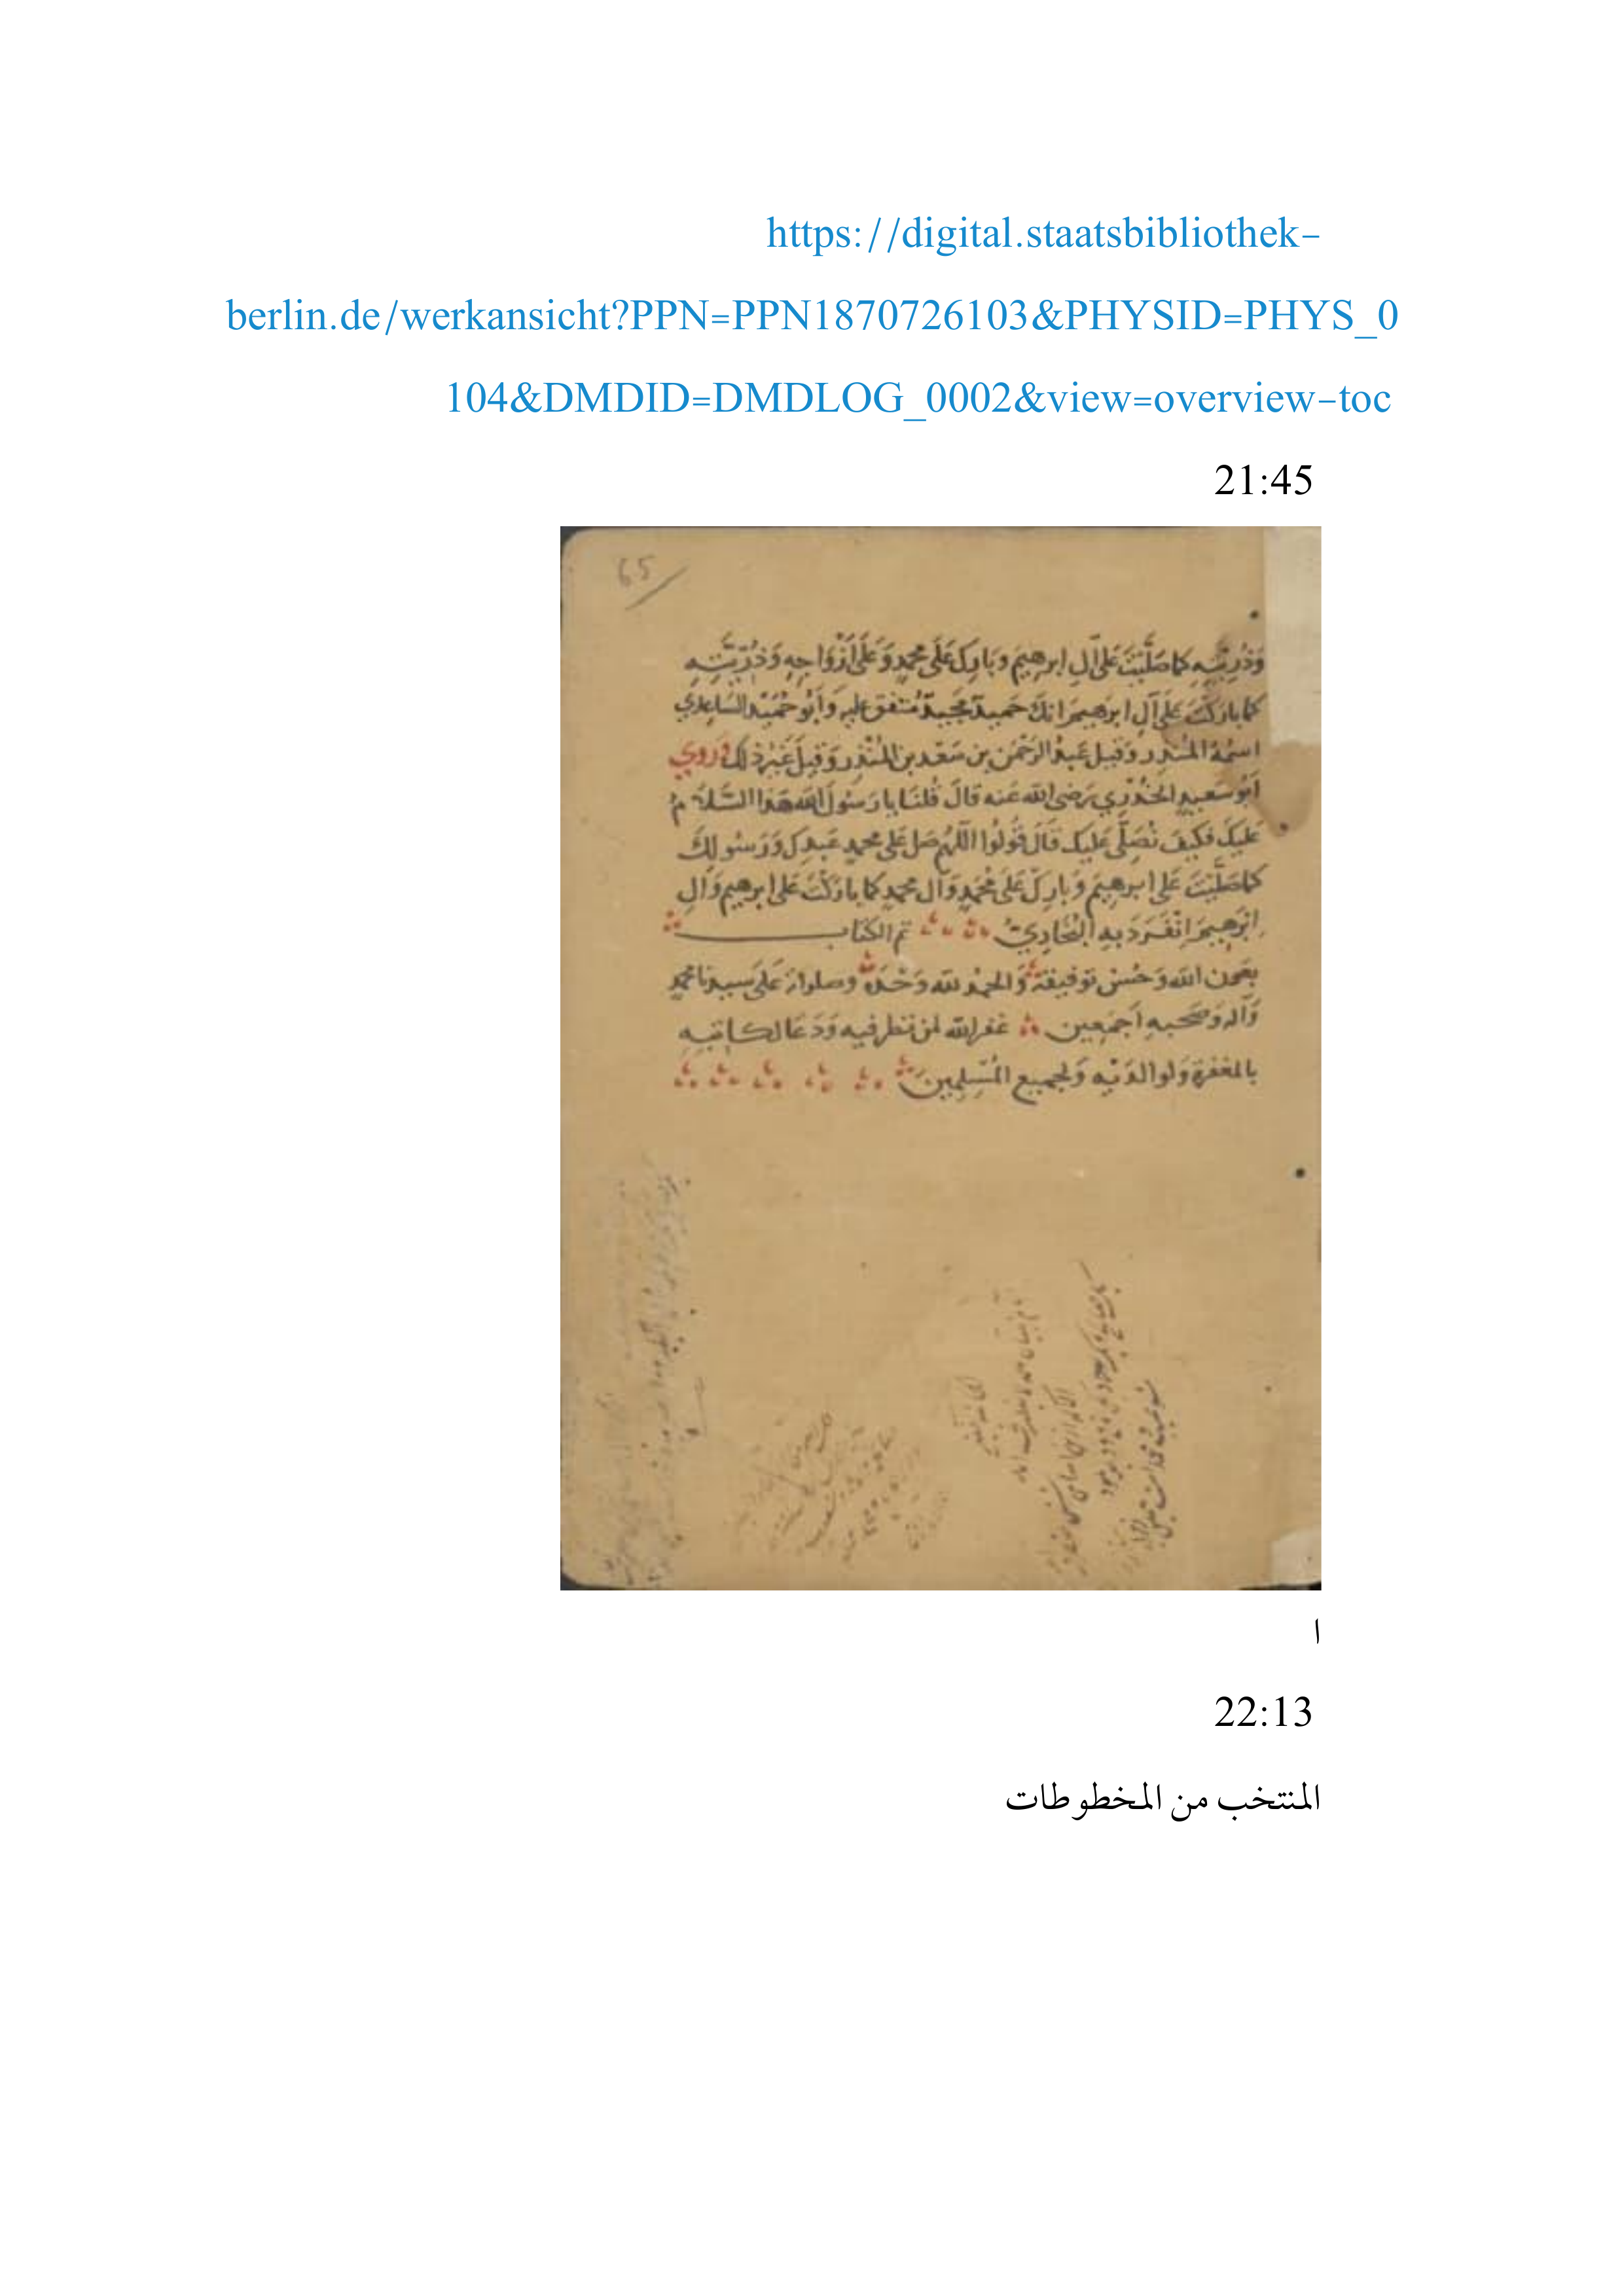 https://digital.staatsbibliothek-
berlin.de/werkansicht?PPN=PPN1870726103&PHYSID=PHYS_0
104&DMDID=DMDLOG_0002&view=overview-toc
21:45
65
وَذُرِيَّتِهِ كما صَلَّيْتَ عَلى آلِ ابرهيم وَبَارِك عَلَى محمدٍ وَعَلَى أَزْوَاجِهِ وَذُرِّيَّتِهِ
كما باركْتَ عَلى آلِ ابرهيمَ انك حَميدٌ مجيدٌ مُتفق عليه وَأبُو حُمَيْد الساعدي
اسمُهُ المنذر وَقيل عَبدُ الرَّحْمَن بن سَعْد بن المُنْذِر وَقيلَ غَيرُ ذلك وَروي
أبو سَعيدٍ الخُدْرِي رَضي الله عَنه قالَ قُلْنَا يا رَسُولَ الله هَذا السَّلامُ
عَليكَ فكيفَ نُصَلّي عَليك قَالَ قُولُوا اللهُم صَل عَلى محمدٍ عَبدِك وَرَسُولِكَ
كما صَلَّيْتَ عَلى ابرهيمَ وَبارِكْ عَلَى مُحَمَّدٍ وَآل محمدٍ كما باركْتَ عَلى ابرهيم وَآلِ
ابْرَهِيمَ انْفَرَدَ بِهِ البُخَارِيُّ تم الكتاب
بعَون الله وَحُسْن توفيقه وَالحمْد لله وَحْدَهُ وصلواته عَلَى سَيدنا محمدٍ
وَآله وَصَحْبهِ أَجمَعين غفر الله لمن نظر فيه وَدَعَا لكاتبِهِ
بالمغفرة وَلوالدَيْه وَلجميع المُسْلِمِينَ
ا
22:13
المنتخب من المخطوطات